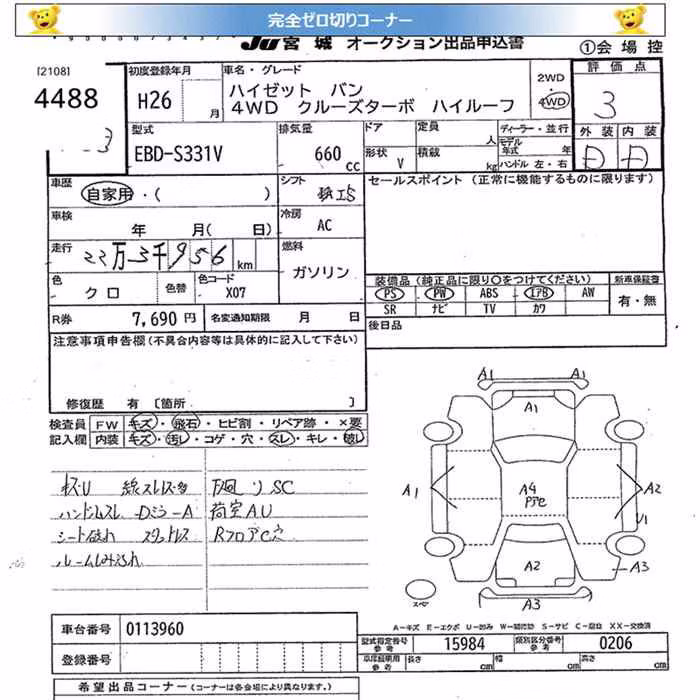 完全ゼロ切りコーナー
JU 宮城 オークション出品申込書
①会場控
[2108]
4488
3
初度登録年月
H26 月
車名・グレード
ハイゼット バン
4WD クルーズターボ ハイルーフ
2WD
・
4WD
評価点
3
外装 内装
D D
型式
EBD-S331V
排気量
660 cc
ドア
形状 V
定員 人
積載 kg
ディーラー・並行
モデル年式 年
ハンドル 左・右
車歴
自家用・( )
シフト
車検
年 月( 日)
冷房
AC
セールスポイント (正常に機能するものに限ります)
走行
22万3千956 km
燃料
ガソリン
色
クロ
色替
色コード
X07
装備品 (純正品に限り○をつけてください)
PS PW ABS エアB AW
SR ナビ TV カワ
新車保証書
有・無
R券 7,690円
名変通知期限 月 日
後日品
注意事項申告欄 (不具合内容等は具体的に記入して下さい)
修復歴 有 [箇所 ]
検査員記入欄
FW キズ・飛石・ヒビ割・リペア跡・×要
内装 キズ・汚レ・コゲ・穴・スレ・キレ・破レ
キズ・U 線スレス多
ハンドルスレ
シート破れ スタットレス
ルームしみ汚れ
下廻りSC
荷室AU
RフロアC穴
A1
A1
A1
A4
A2
U1
A2
A3
A3
スペア
A-キズ E-エクボ U-凹み W-補修跡 S-サビ C-腐蝕 XX-交換済
車台番号 0113960
登録番号
型式指定番号 参考 15984
類別区分番号 参考 0206
車庫証明用 参考 長さ cm 幅 cm 高さ cm
希望出品コーナー (コーナーは各会場により異なります。)